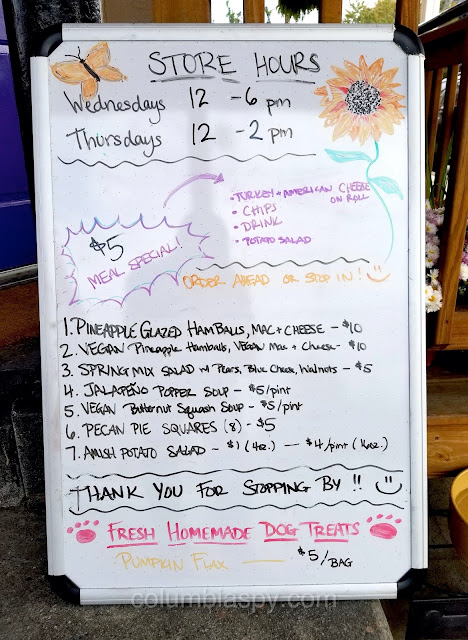 STORE HOURS
Wednesdays 12 - 6 pm
Thursdays 12 - 2 pm
$5
MEAL SPECIAL!
• TURKEY + AMERICAN CHEESE
ON ROLL
• CHIPS
• DRINK
• POTATO SALAD
ORDER AHEAD OR STOP IN!
1. PINEAPPLE GLAZED HAMBALLS, MAC + CHEESE - $10
2. VEGAN Pineapple Hamballs, VEGAN Mac + Cheese - $10
3. SPRING MIX SALAD w/ Pears, Blue Cheese, Walnuts - $5
4. JALAPEÑO POPPER SOUP - $5/pint
5. VEGAN Butternut Squash Soup - $5/pint
6. PECAN PIE SQUARES (8) - $5
7. AMISH POTATO SALAD - $1 (4oz.) — $4/pint (16oz.)
THANK YOU FOR STOPPING BY !!
FRESH HOMEMADE DOG TREATS
PUMPKIN FLAX — $5/BAG
columbiaspy.com